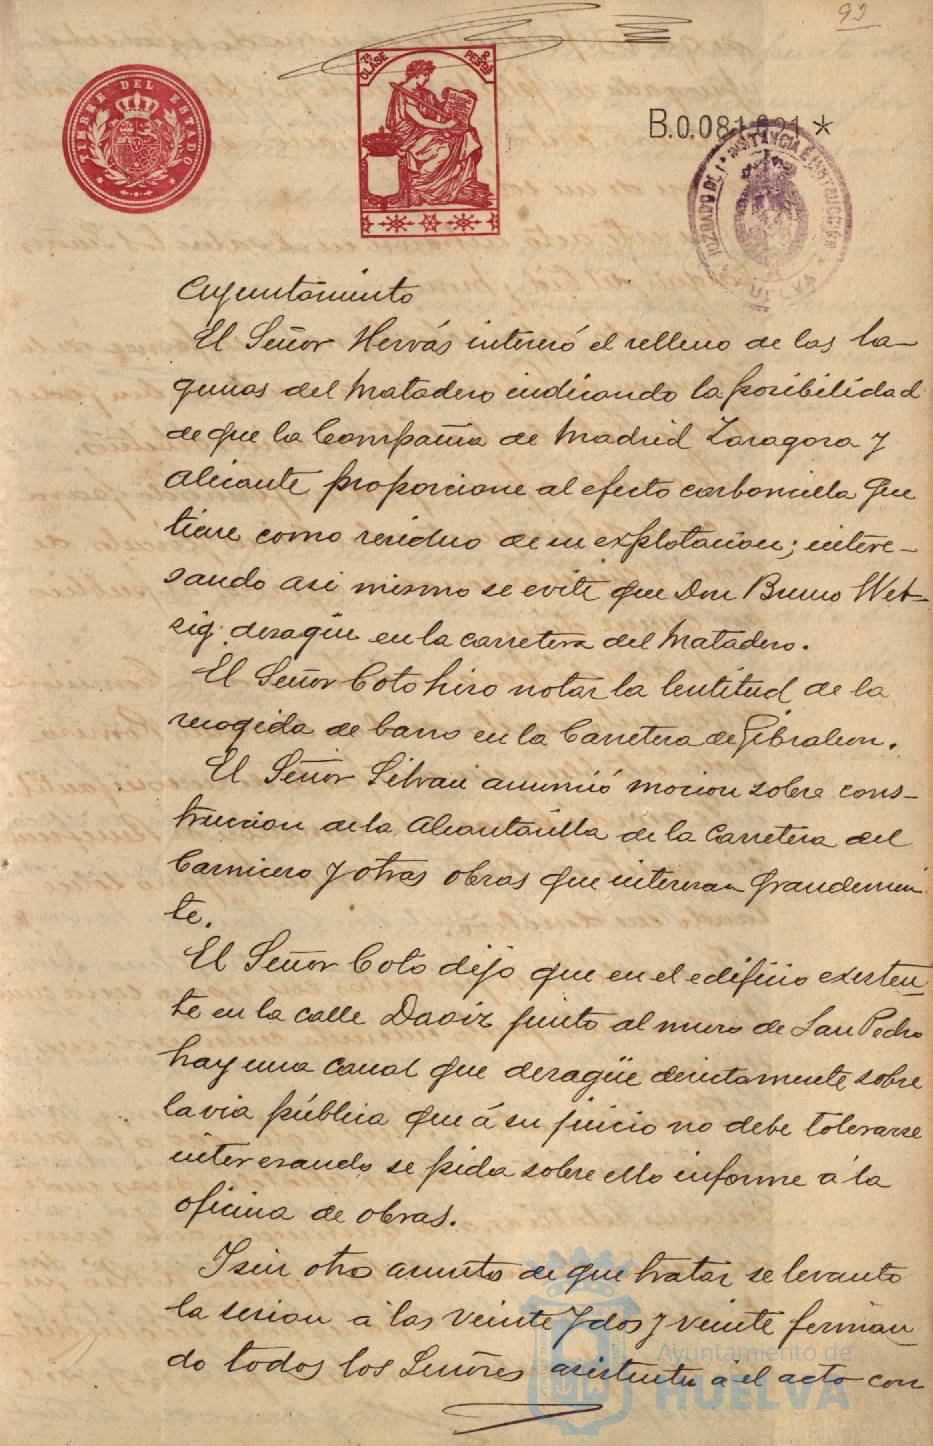 92
TIMBRE DEL ESTADO
7ª CLASE
PESETAS
B.0.081.021 *
JUZGADO DE 1ª INSTANCIA E INSTRUCCIÓN
HUELVA
Ayuntamiento
El Señor Hervás interesó el relleno de las la-
gunas del Matadero indicando la posibilidad
de que la Compañia de Madrid Zaragoza y
Alicante proporcione al efecto carbonilla que
tiene como residuo de su explotacion; intere-
sando asi mismo se evite que Don Bruno Wet-
zig desagüe en la carretera del Matadero.
El Señor Coto hizo notar la lentitud de la
recogida de barro en la Carretera de Gibraleon.
El Señor Silvan anunció mocion sobre cons-
truccion de la Alcantarilla de la Carretera del
Carnicero y otras obras que interesan grandemen
te.
El Señor Coto dijo que en el edificio existen-
te en la calle Daoiz junto al muro de San Pedro
hay una canal que desagüe directamente sobre
la via pública que á su juicio no debe tolerarse
interesando se pida sobre ello informe á la
oficina de obras.
Y sin otro asunto de que tratar se levanto
la sesion á las veinte y dos y veinte firman
do todos los Señores asistentes á el acto con
Ayuntamiento de
HUELVA